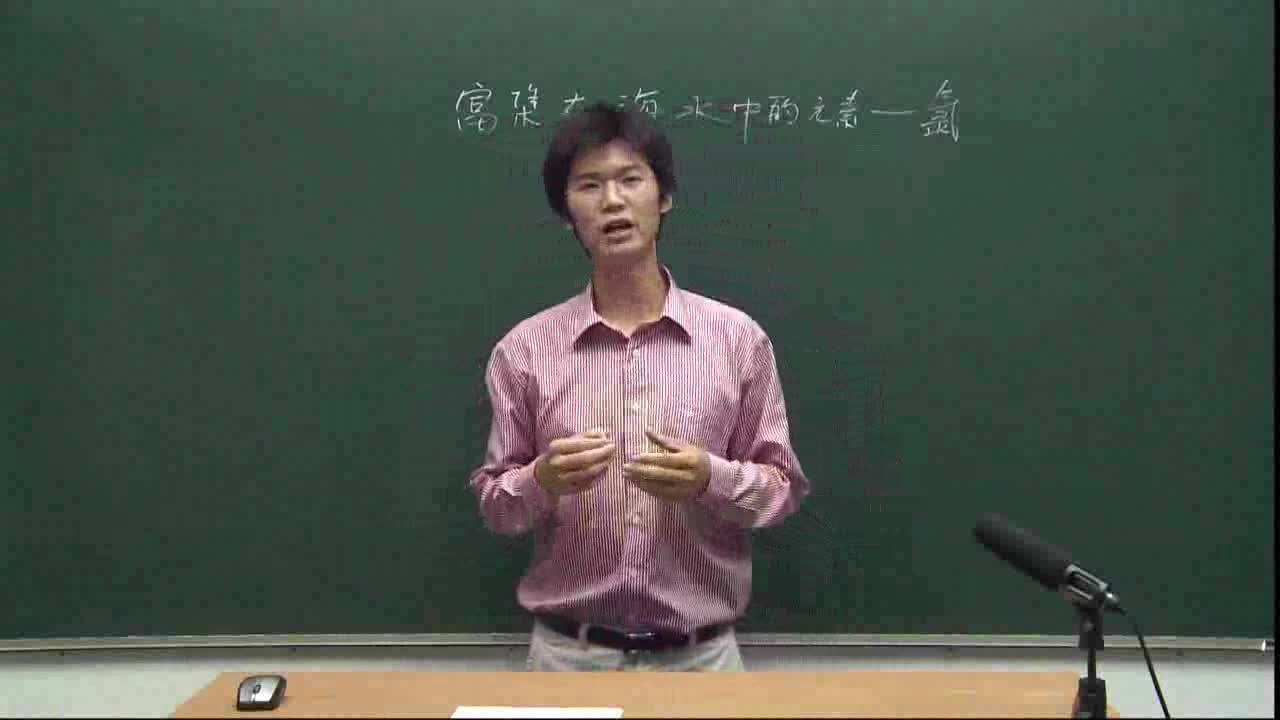 富集在海水中的元素—氯